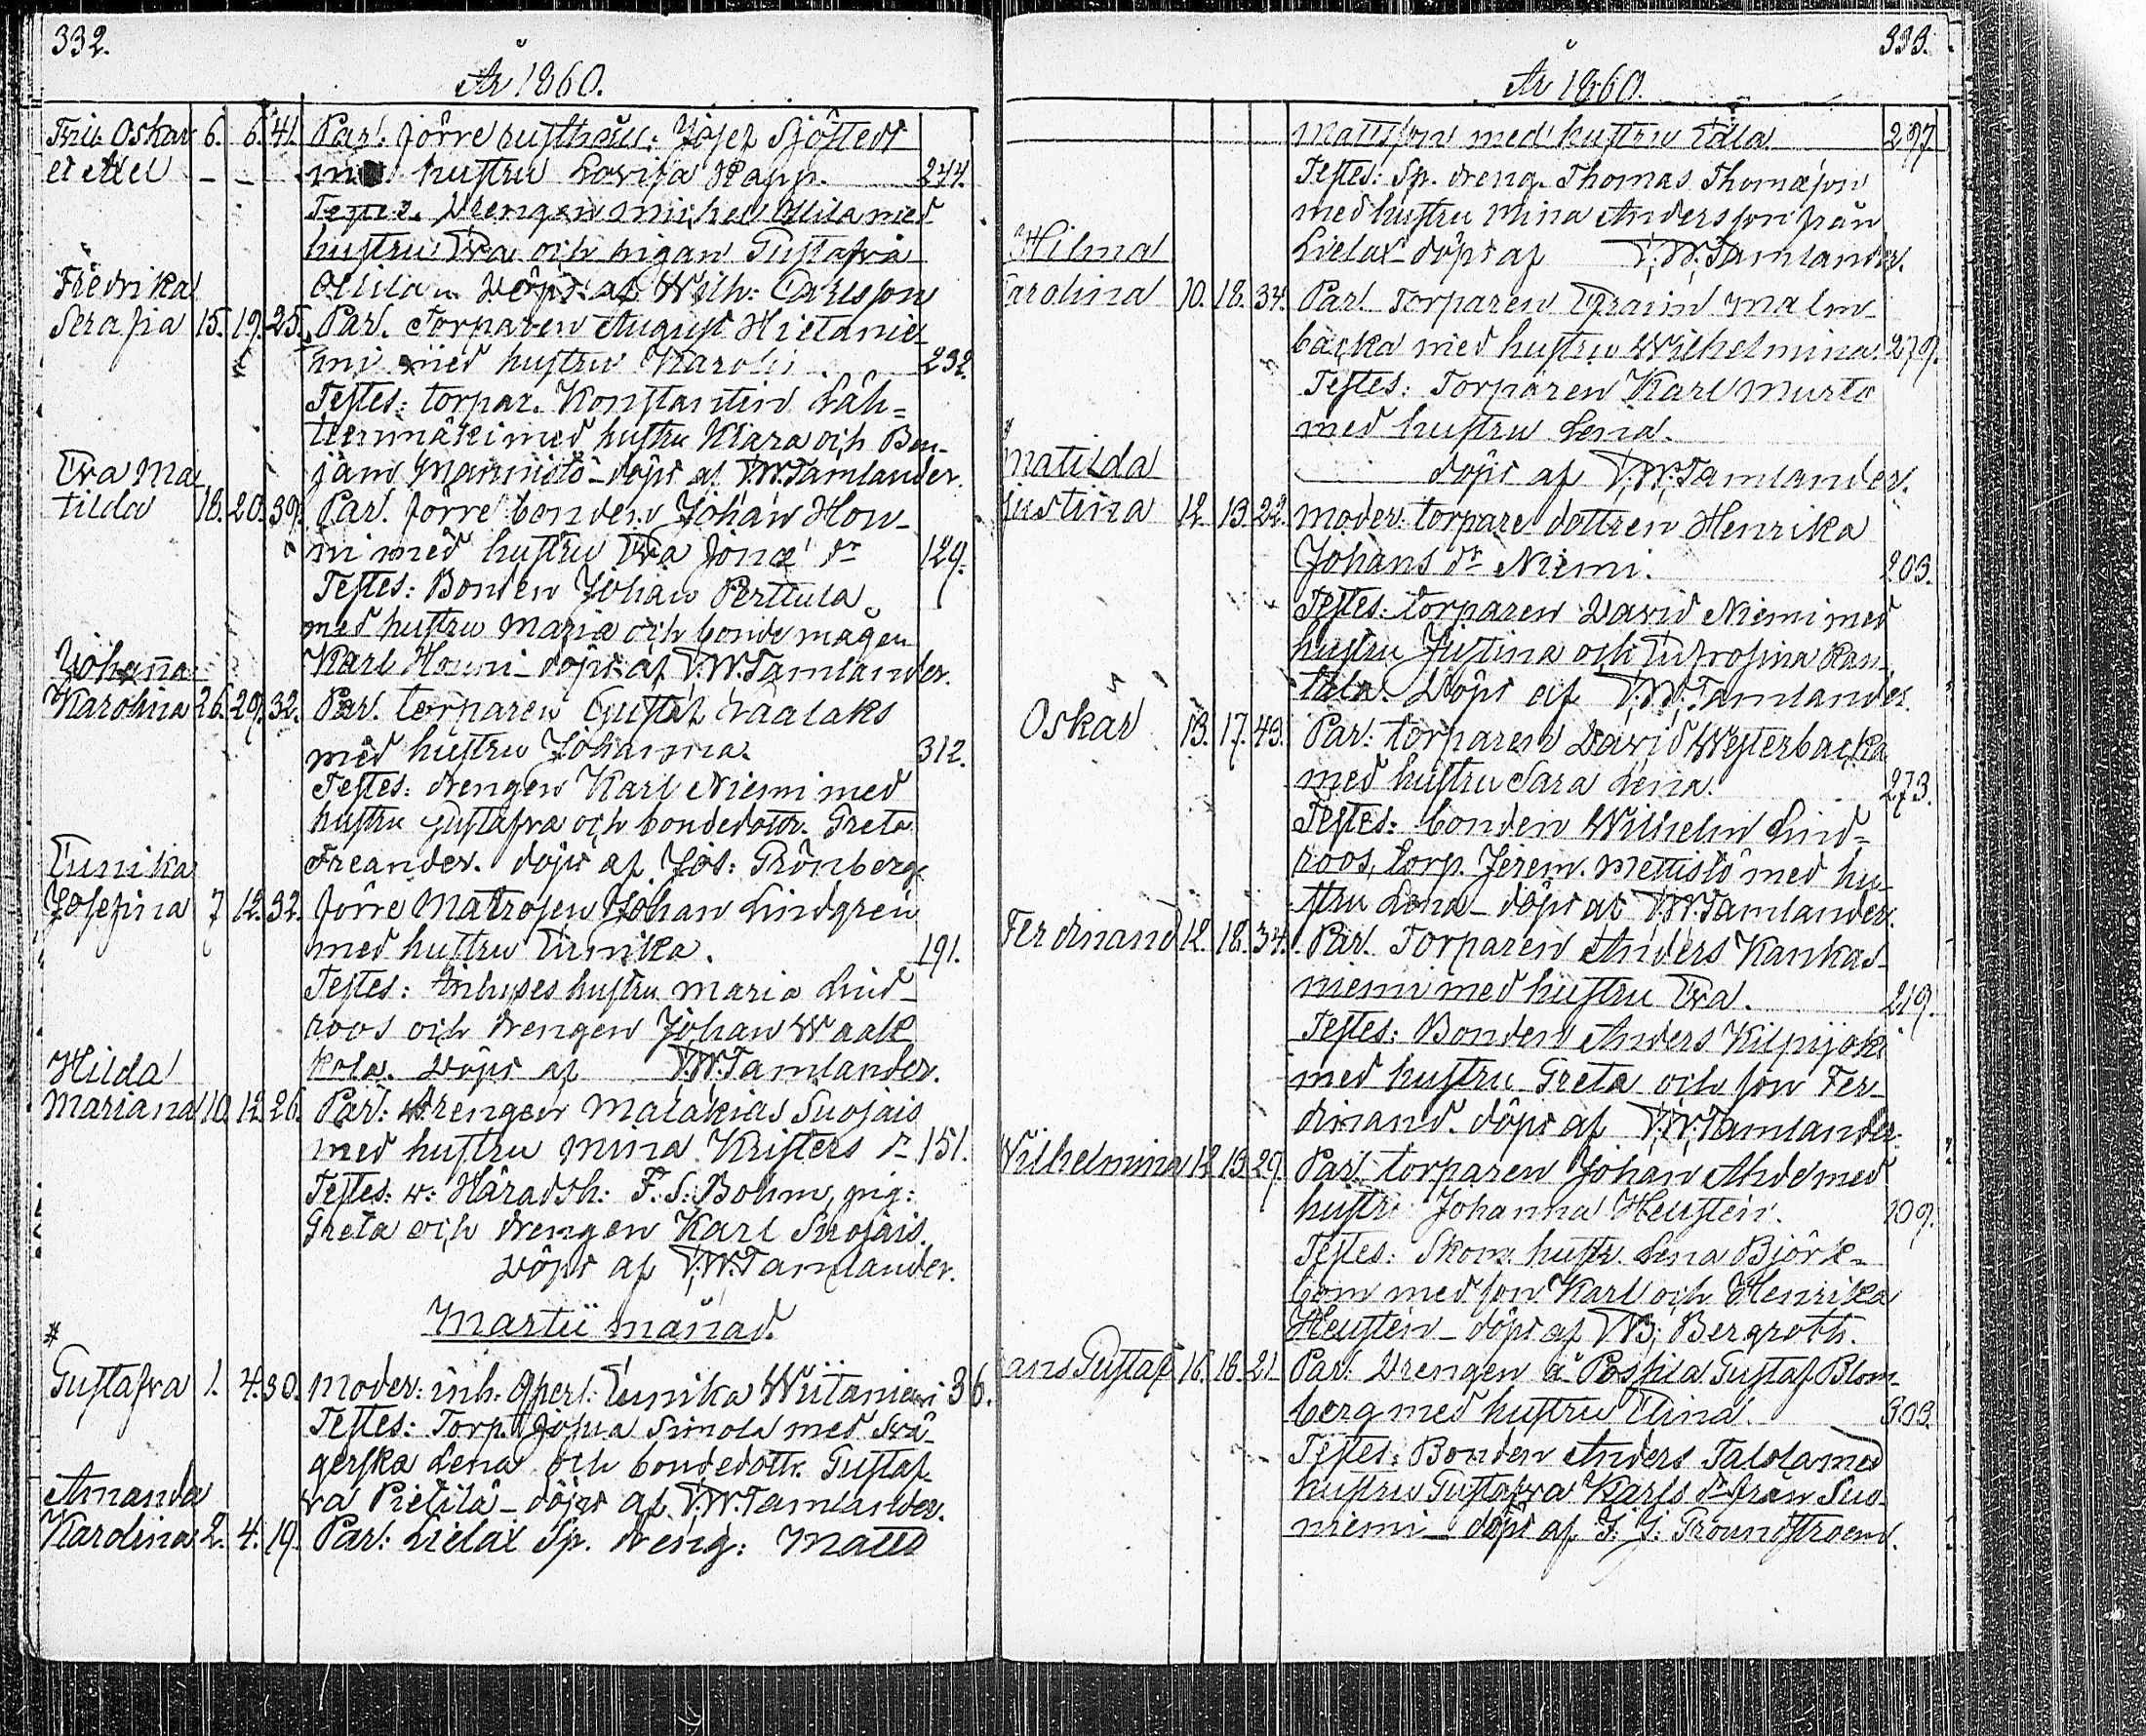 332.
År 1860.
Oskar 6. 6. 41. Par. förre Josef Sjöstedt
et Axel – – hustru Lovisa Rapp. 244.
Testes. Drengen Michel med
hustru Eva och pigan Gustafva
Döpt af Wilh: Carlsson
Fredrika
Serafia 15. 19. 25. Par. Torparen August Hietanie-
mi med hustru 232.
Testes: torpar. Konstantin Läh=
teenmäki med hustru Klara och Ben-
jam Mannistö – döpt af F.W. Tamlander.
Eva Ma
tilda 18. 20. 39. Par. förre bonden Johan Hon-
ni med hustru Eva Jonæ dr 129.
Testes: Bonden Johan Perttula
med hustru Maria och bonde mågen
Karl Honni – döpt af F.W. Tamlander.
Johaña
Karolina 26. 29. 32. Par. torparen Gustaf
med hustru Johanna. 312.
Testes: drengen Karl Niemi med
hustru Gustafva och bondedottr. Greta
Freander. döpt af Jos: Grönberg
Eunika
Josefina 7 12. 32. förre Matrosen Johan Lindgren
med hustru Eunika. 191.
Testes: Inhyses hustru Maria Lind-
roos och drengen Johan Waak
kola. Döpt af F.W. Tamlander.
Hilda
Mariana 10. 12. 26. Par: drengen Malakias Suojais
med hustru Mina Kristers dr 151.
Testes: w: Häradsh: F. S: Bohm, pig:
Greta och drengen Karl Suojais.
Döpt af F.W. Tamlander.
Martii månad.
#
Gustafva 1. 4. 30. Moder: inh. Eunika Wiitaniemi 36.
Testes: Torp. Josua Simola med Svä-
gerska Lena och bondedottr. Gustaf-
va Pietilä – döpt af F.W. Tamlander.
Amanda
Karolina 2. 4. 19. Par: Lielax Sp. dreng: Matts
333.
År 1860.
Mattsson med hustru Ulla 297
Testes: Sp. dreng. Thomas Thomæson
med hustru Mina Andersson från
Lielax döpt af F.W. Tamlander.
Hilma
arolina 10. 18. 34. Par. Torparen Efraim Malm-
backa med hustru Wilhelmina. 279.
Testes: Torparen Karl Murto
med hustru Lena.
döpt af F.W. Tamlander.
Matilda
Justina 12. 13. 22. Moder: torpare dottren Henrika
Johans dr Niemi. 203.
Testes: torparen David Niemi med
hustru Justina och Eufrosina Ran-
tala. Döpt af F.W. Tamlander.
Oskar 13. 17. 43. Par: torparen David Westerbacka
med hustru Sara Lena. 273.
Testes: bonden Wilhelm Lind=
roos, torp. Jerem. Mettistö med hu-
stru Lena – döpt af F.W. Tamlander.
Ferdinand 12. 18. 34. Par. Torparen Anders Kankas-
niemi med hustru Eva. 219.
Testes: Bonden Anders Kilpijoki
med hustru Greta och son Fer-
dinand. döpt af F.W. Tamlander.
Wilhelmina 12 13. 29. Par: torparen Johan Ahde med
hustru Johanna Heusten. 109.
Testes: Skom. hustr. Lena Björk-
bom med son Karl och Henrika
Heusten – döpt af Bergroth.
ans Gustaf 16. 18. 21 Par: Drengen å Possila Gustaf Blom-
berg med hustru Elina. 303.
Testes: Bonden Anders Talola med
hustru Gustafva Karls dr från Suo-
niemi – döpt af G: J: Groundstroem.